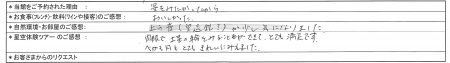 *当館をご予約された理由 : 星をみたかったから
*お食事(フレンチ)・飲料(ワインや接客)のご感想: おいしかった。
*自然環境・お部屋のご感想: が少し気になりました
*星空体験ツアーのご感想: 肉眼で土星の輪をみることができて、とても満足です。
べガも月もとてもきれいにみえました。
*お客さまからのリクエスト